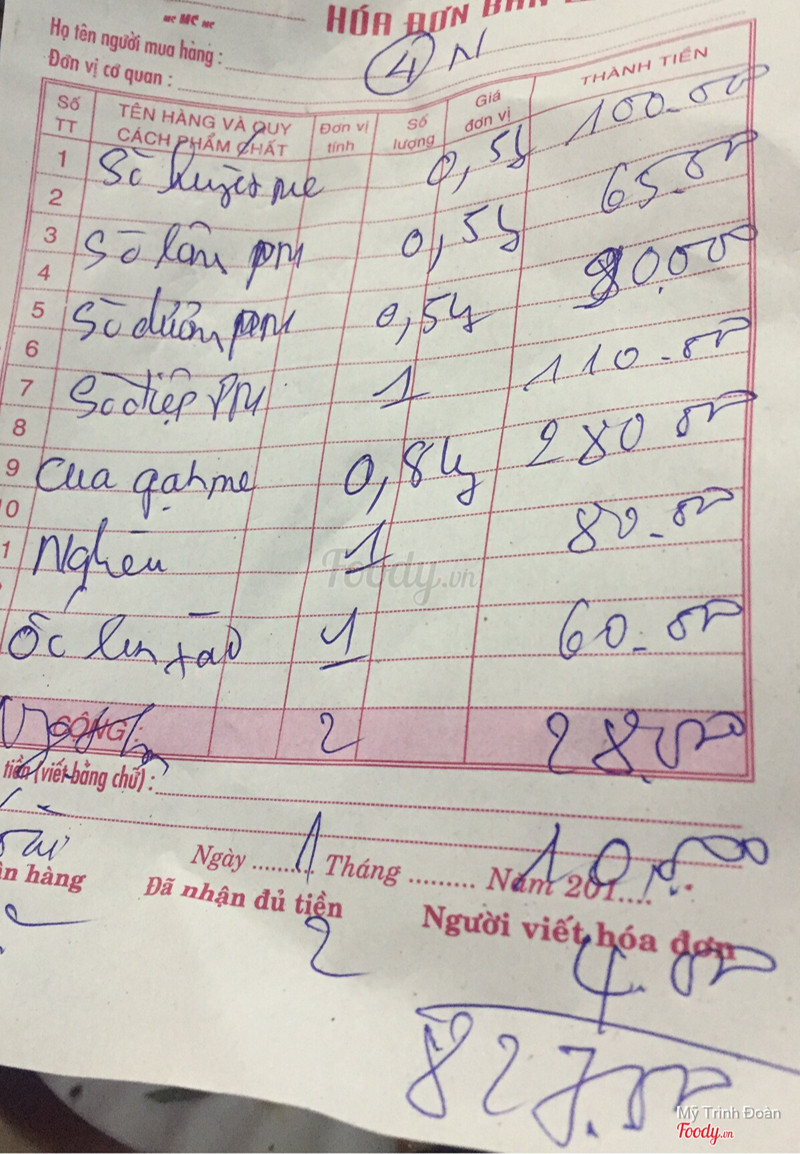 HÓA ĐƠN BÁN
Họ tên người mua hàng :
Đơn vị cơ quan :
4 N
Số TT TÊN HÀNG VÀ QUY CÁCH PHẨM CHẤT Đơn vị tính Số lượng Giá đơn vị THÀNH TIỀN
1 Sò huyết me 0,5kg 100.000
2 65.000
3 Sò lông PM 0,5kg
4 90.000
5 Sò dương PM 0,5kg
6 110.000
7 Sò điệp PM 1
8 280.000
9 Cua rang me 0,8kg
0 80.000
1 Nghêu 1
Ốc len xào 1 60.000
CỘNG : 2 28.000
tiền (viết bằng chữ) :
1 10.000
Ngày ......... Tháng ......... Năm 201....
ận hàng Đã nhận đủ tiền Người viết hóa đơn
2 4.000
827.000
Foody.vn
Mỹ Trinh Đoàn
Foody.vn